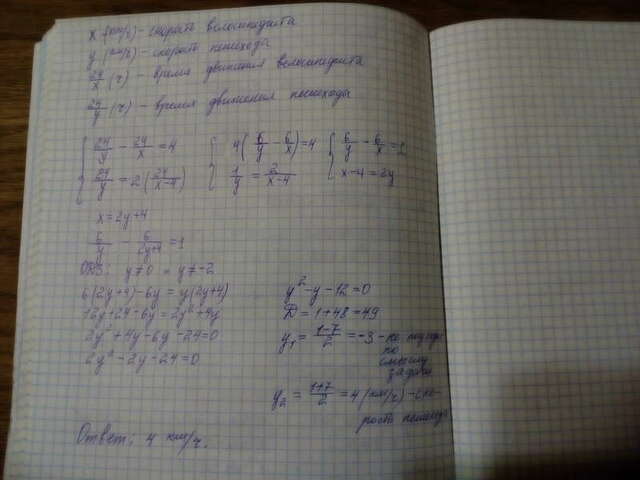 x (км/ч) - скорость велосипедиста
y (км/ч) - скорость пешехода
24/x (ч) - время движения велосипедиста
24/y (ч) - время движения пешехода
{ 24/y - 24/x = 4   { 4(6/y - 6/x) = 4   { 6/y - 6/x = 1
24/y = 2(24/(x-4))   1/y = 2/(x-4)   x-4 = 2y
x = 2y+4
6/y - 6/(2y+4) = 1
ОДЗ: y≠0 и y≠-2
6(2y+4) - 6y = y(2y+4)
12y+24-6y = 2y²+4y
2y²+4y-6y-24=0
2y²-2y-24=0
y²-y-12=0
D = 1+48 = 49
y₁ = (1-7)/2 = -3 - не
по
смыслу
задачи
y₂ = (1+7)/2 = 4 (км/ч) - ско-
рость пешехода
Ответ: 4 км/ч.